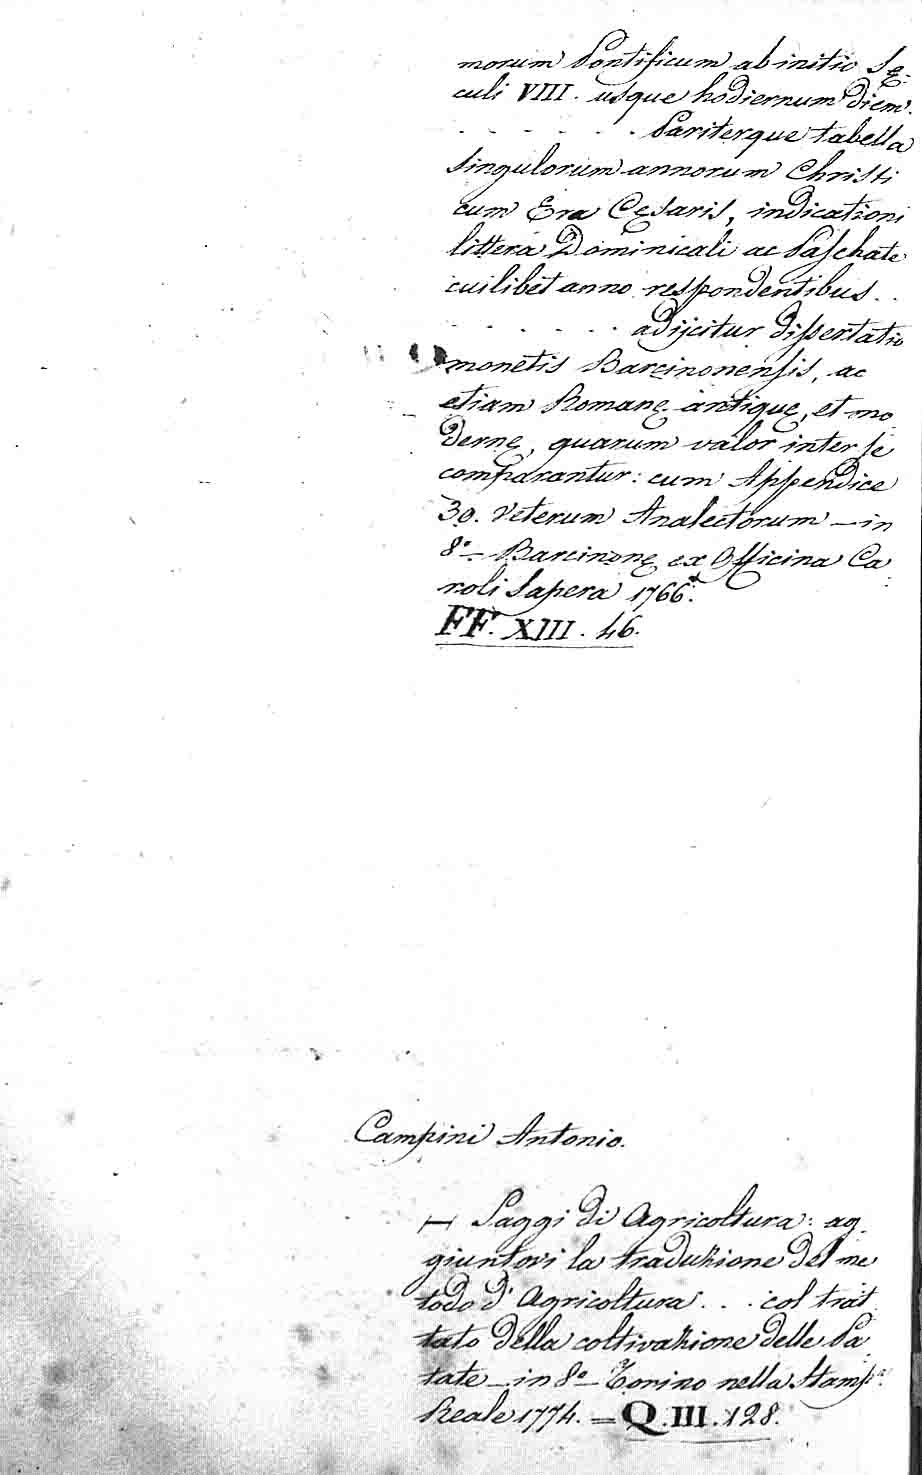 morum Pontificum ab initio Sę-
culi VIII. usque hodiernum diem.
. . . . . . Pariterque tabella
singulorum annorum Christi
cum Era Cęsaris, indictioni
littera Dominicali ac Paschate
cuilibet anno respondentibus . .
. . . . . . adijcitur dissertatio
monetis Barcinonensis, ac
etiam Romanę antiquę, et mo
dernę, quarum valor inter se
comparantur: cum Appendice
30. Veterum Analectorum – in
8º – Barcinonę ex Officina Ca
roli Sapera 1766.
FF. XIII. 46.
Campini Antonio.
— Saggi di Agricoltura: ag
giuntovi la traduzione del me
todo d'Agricoltura . . . col trat
tato della coltivazione delle Pa
tate – in 8º – Torino nella Stampª.
Reale 1774. = Q. III. 128.